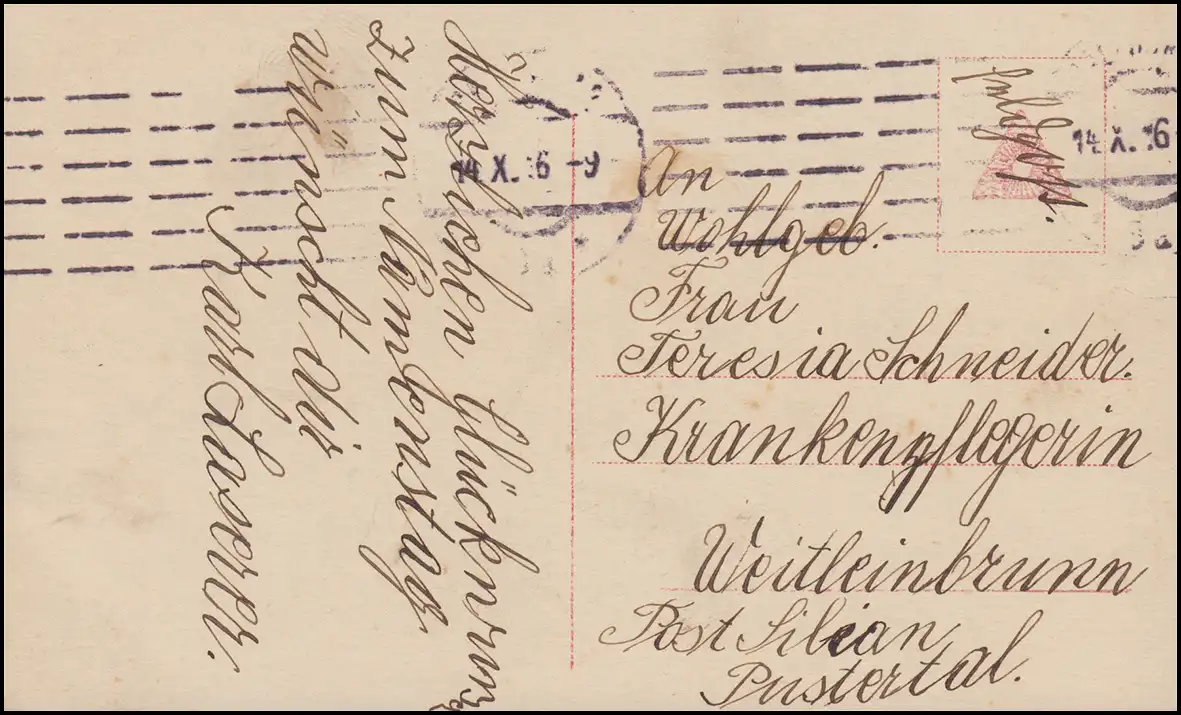 Herzlichen Glückwunsch
zum Namenstag
wünscht Dir
Karl Laserer.
14 X. 16 -9
14 X. 16
An
Wohlgeb.
Frau
Teresia Schneider.
Krankenpflegerin
Weitleinbrunn
Post Silian
Pustertal.